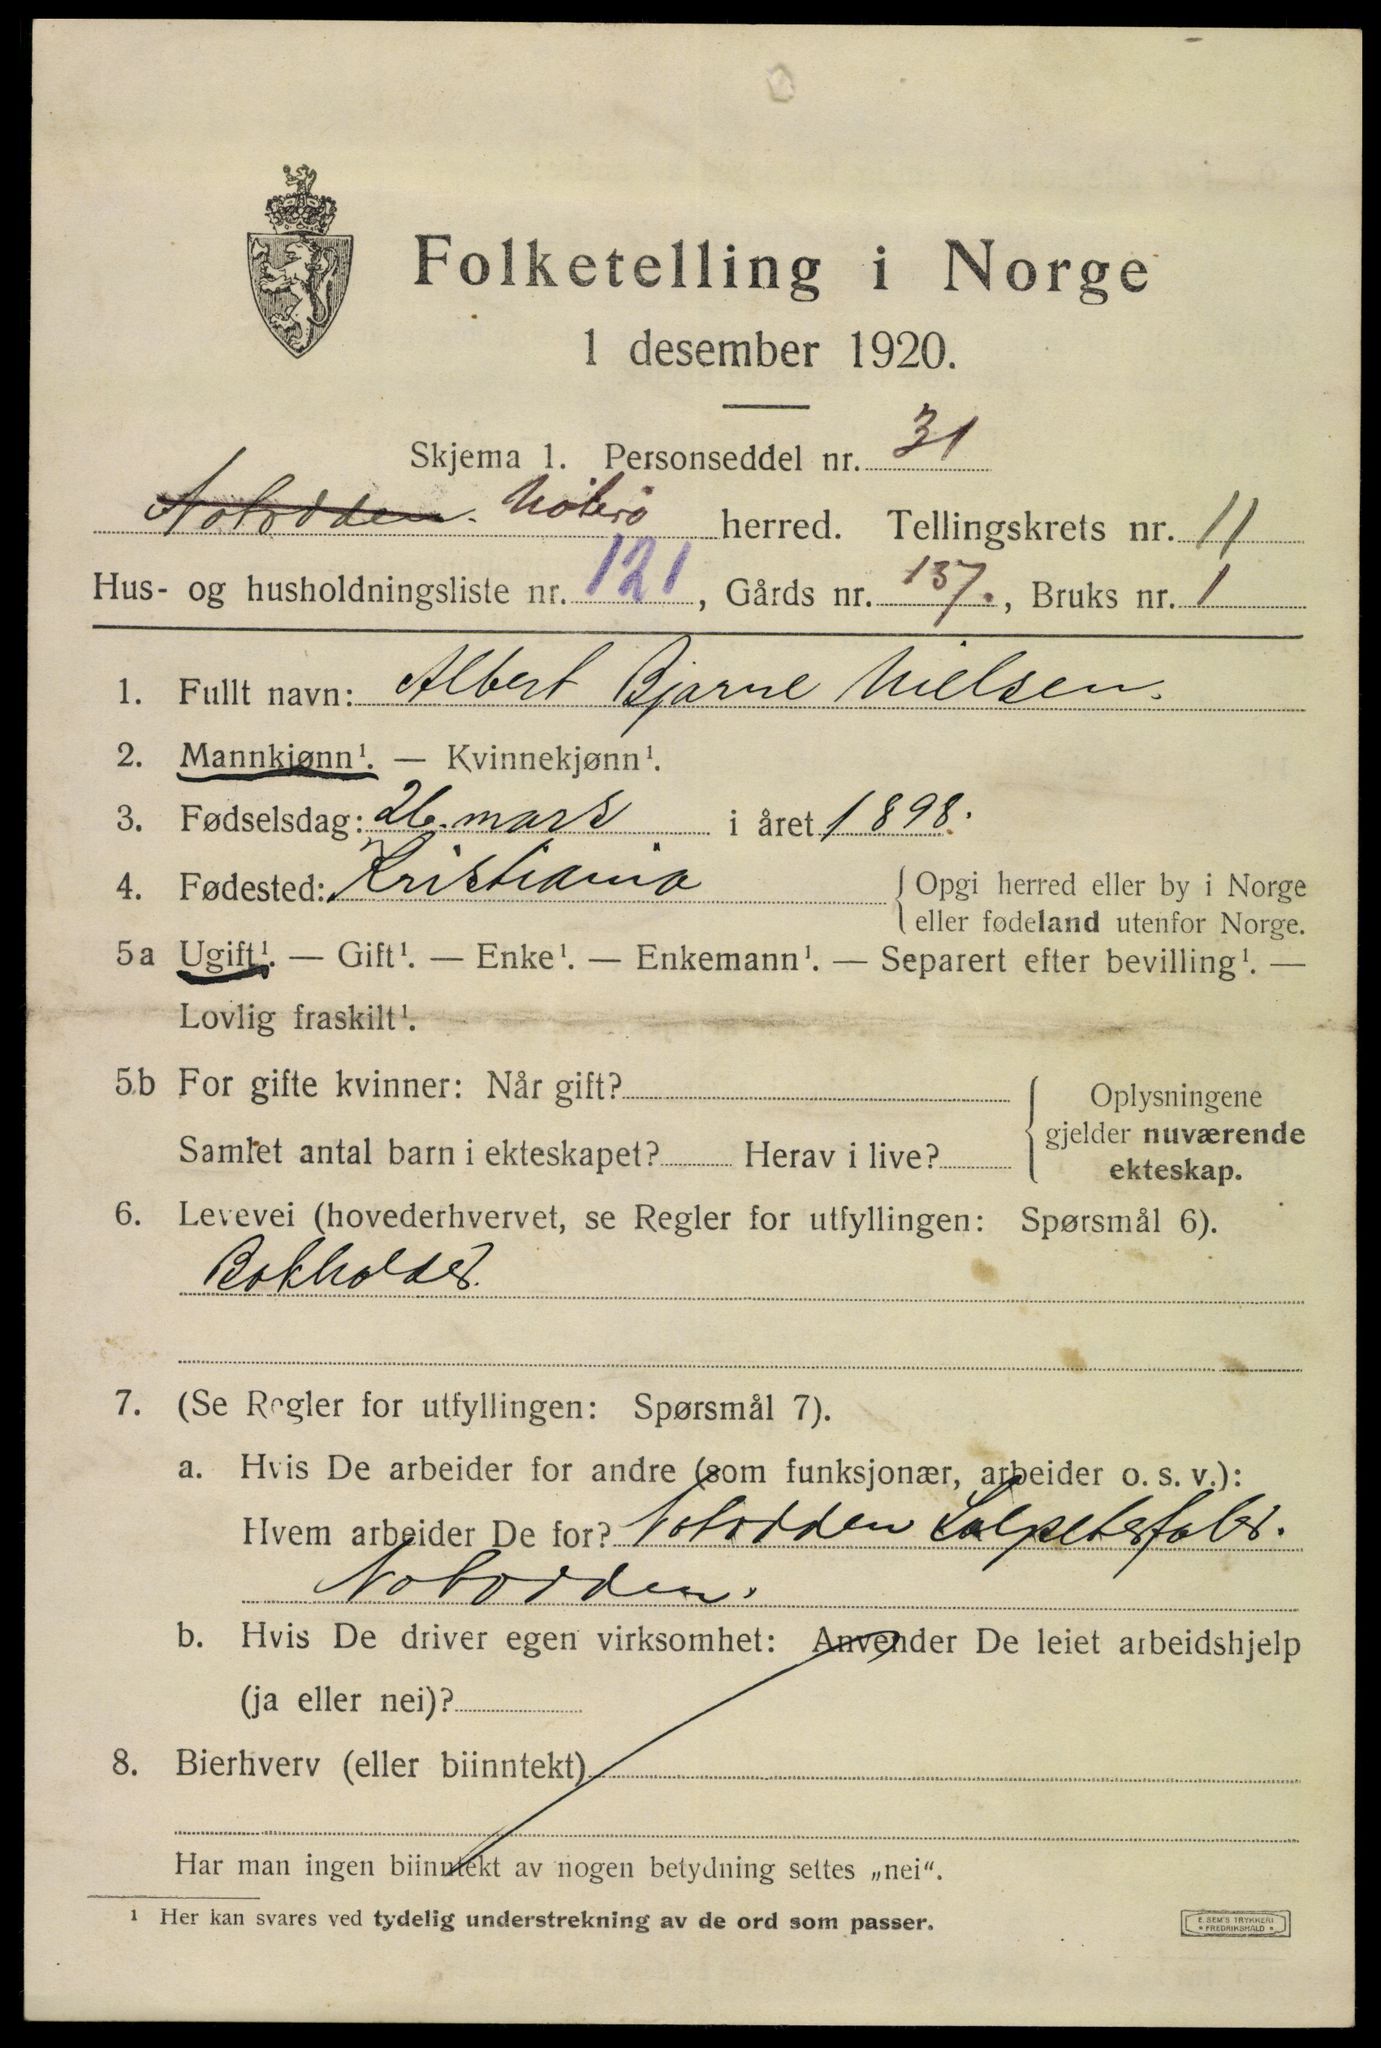 Folketelling i Norge
1 desember 1920.
Skjema 1. Personseddel nr. 31
Notodden. Nøterø herred. Tellingskrets nr. 11
Hus- og husholdningsliste nr. 121, Gårds nr. 137., Bruks nr. 1
1. Fullt navn: Albert Bjarne Nielsen.
2. Mannkjønn¹. — Kvinnekjønn¹.
3. Fødselsdag: 26. mars i året 1898.
4. Fødested: Kristiania { Opgi herred eller by i Norge
eller fødeland utenfor Norge.
5a Ugift¹. — Gift¹. — Enke¹. — Enkemann¹. — Separert efter bevilling¹. —
Lovlig fraskilt¹.
5b For gifte kvinner: Når gift? { Oplysningene
gjelder nuværende
Samlet antal barn i ekteskapet? Herav i live?
ekteskap.
6. Levevei (hovederhvervet, se Regler for utfyllingen: Spørsmål 6).
Bokholder.
7. (Se Regler for utfyllingen: Spørsmål 7).
a. Hvis De arbeider for andre (som funksjonær, arbeider o. s. v.):
Hvem arbeider De for? Notodden Salpeterfabr.
Notodden.
b. Hvis De driver egen virksomhet: Anvender De leiet arbeidshjelp
(ja eller nei)?
8. Bierhverv (eller biinntekt)
Har man ingen biinntekt av nogen betydning settes „nei“.
¹ Her kan svares ved tydelig understrekning av de ord som passer.
E. SEM'S TRYKKERI
* FREDRIKSHALD *